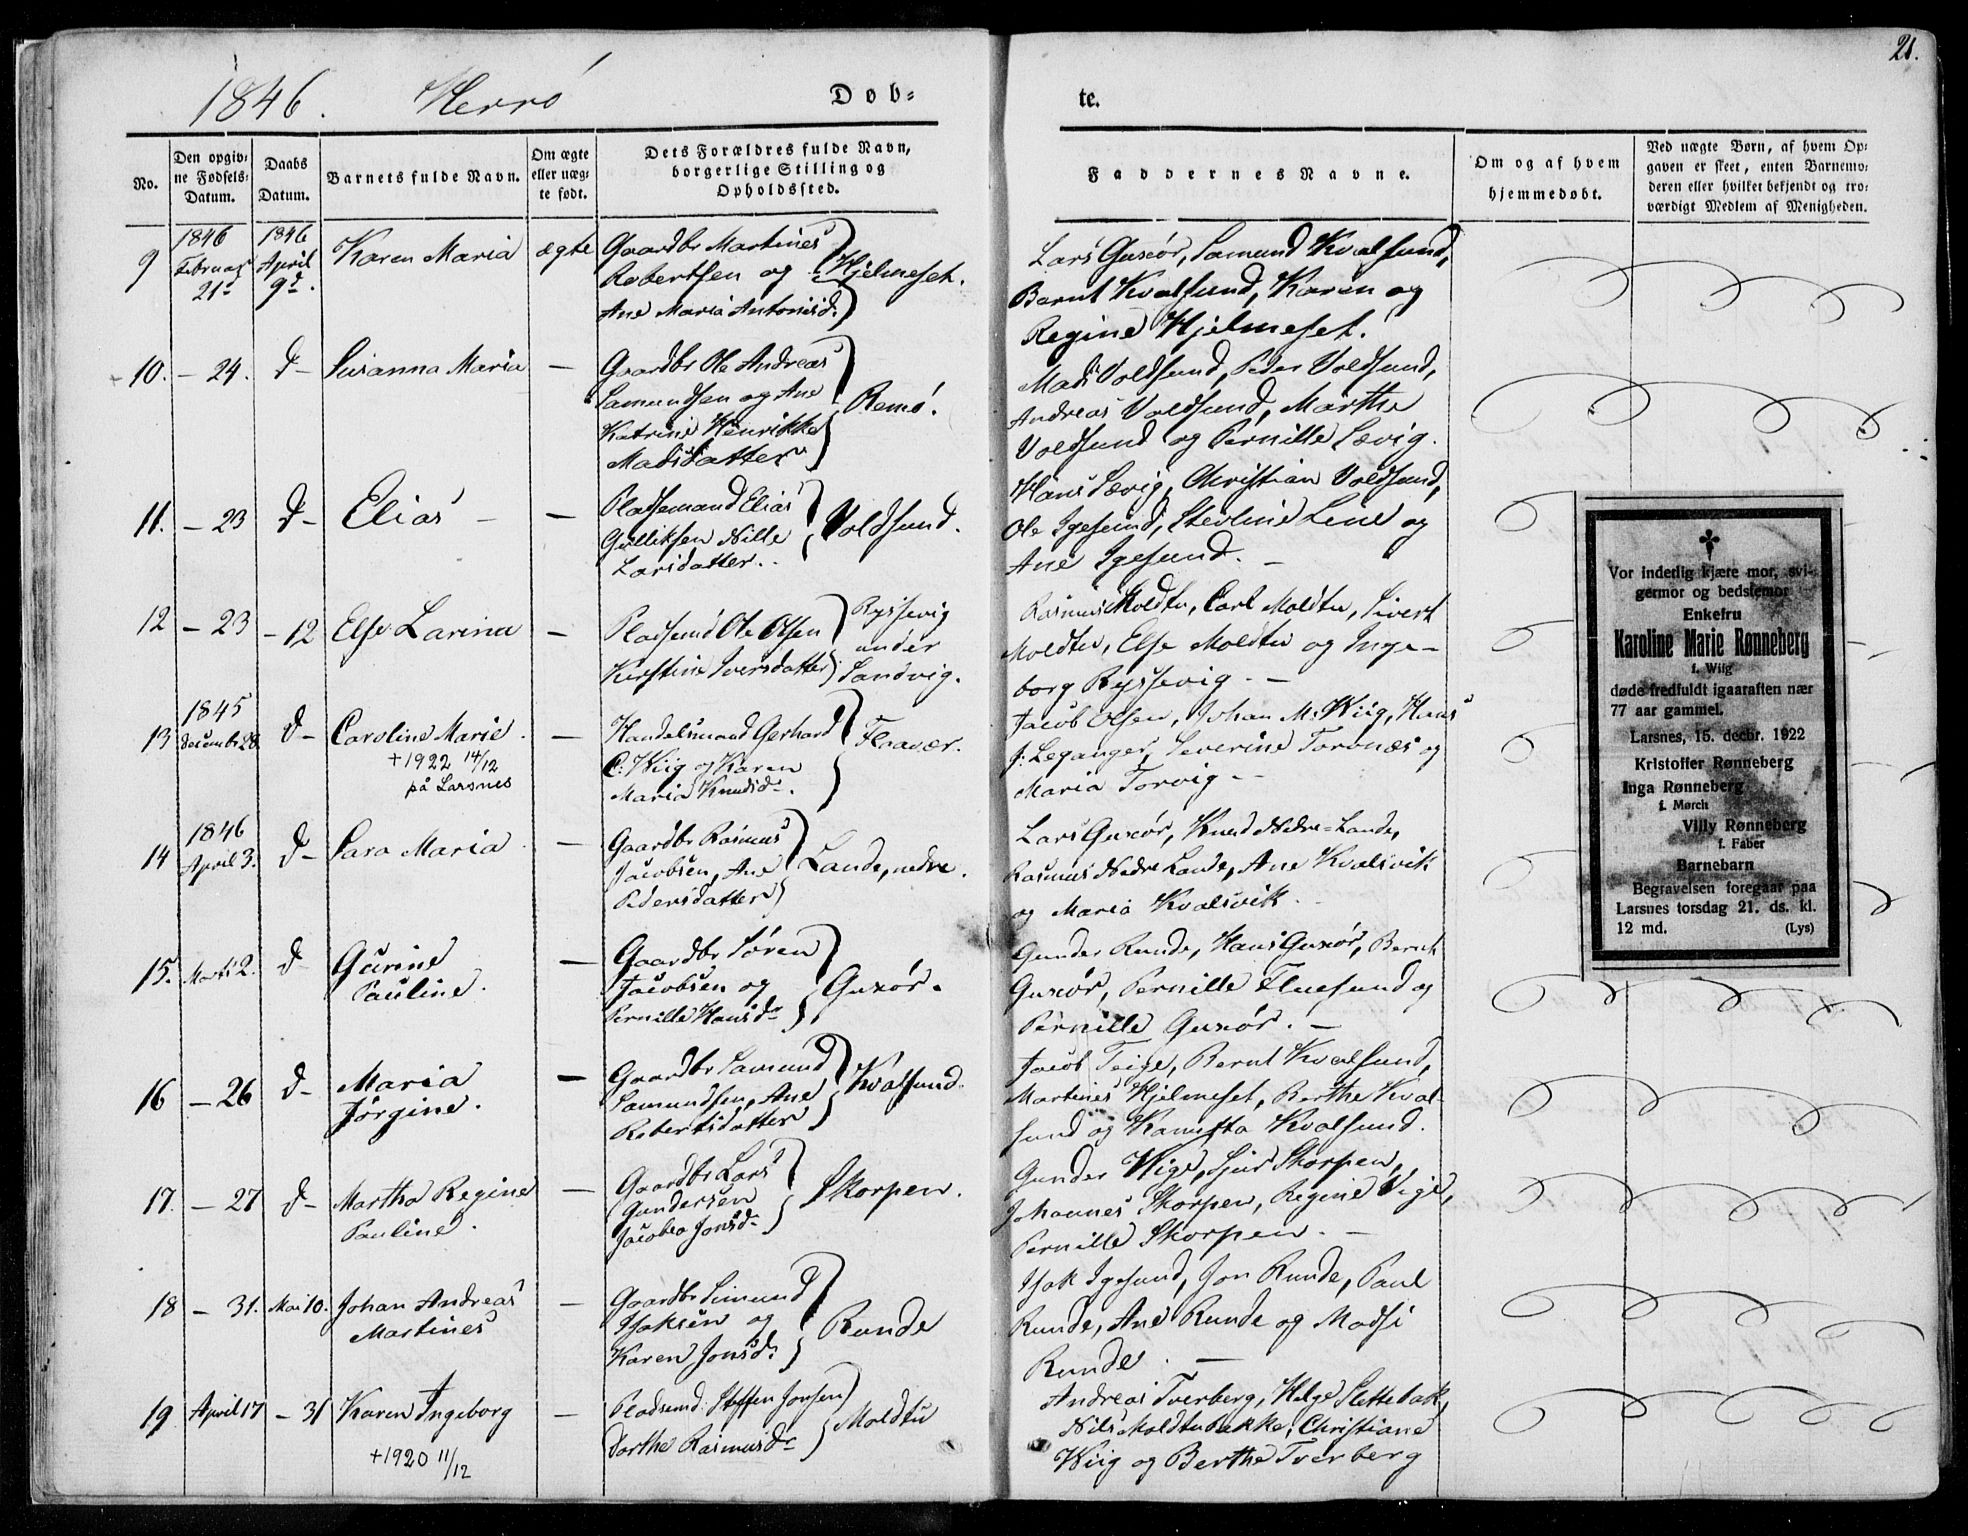 1846. Herrö Døb-
No.
Den opgiv-
ne Fødsels-
Datum.
Daabs
Datum.
Barnets fulde Navn.
Om ægte
eller uæg-
te født.
Dets Forældres fulde Navn,
borgerlige Stilling og
Opholdssted.
9 1846 Februar 21de 1846 April 9d. Karen Maria ægte
Gaardbr Martines
Robertsen og Hjelmeset.
Ane Maria Antonisd.
10. – 24. d– Susanna Maria –
Gaardbr Ole Andreas
Samundsen og Ane Remö.
Katrine Henrikke
Madsdatter
11. – 23 d– Elias – –
Pladsemand Elias
Gulliksen Nille Voldsund.
Larsdatter.
12 – 23 – 12 Else Larina –
Ryssevig
Pladsemd Ole Olsen under
Kirstine Iversdatter Sandvig.
13 1845 December 28 d– Caroline Marie. –
+1922 14/12
på Larsnes
Handelsmand Gerhard Flaavær.
C. Wiig og Karen
Maria Knudsd.
14 1846 April 3. d– Sara Maria. –
Gaardbr Rasmus
Jacobsen, Ane Lande, nedre.
Pedersdatter
15. Marts 2. d– Gurine –
Pauline.
Gaardbr Søren
Jacobsen og Guxör.
Pernille Hansd.
16 – 26 d– Maria –
Jörgine.
Gaardbr Samund Kvalsund.
Samundsen, Ane
Robertsdatter
17. – 27 d– Martha Regine –
Pauline.
Gaardbr Lars
Gundersen Skorpen.
Jacobea Jonsd.
18 – 31. Mai 10. Johan Andreas –
Martines
Gaardbr Simund
Isaksen og Runde
Karen Jonsd.
19 April 17 – 31 Karen Ingeborg –
+1920 11/12
Pladsemd. Steffen Jonsen Moldtu
Dorthe Rasmusd.
21.
te.
Faddernes Navne.
Om og af hvem
hjemmedøbt.
Ved uægte Børn, af hvem Op-
gaven er skeet, enten Barnemo-
deren eller hvilket bekjendt og tro-
værdigt Medlem af Menigheden.
Lars Guxör, Samund Kvalsund,
Bernt Kvalsund, Karen og
Regine Hjelmeset.
Mads Voldsund, Peder Voldsund,
Andreas Voldsund, Marthe
Voldsund og Pernille Sævig.
Hans Sævig, Christian Voldsund,
Ole Igesund, Lene og
Ane Igesund. –
Rasmus Moldtu, Carl Moldtu, Sivert
Moldtu, Else Moldtu og Inge-
borg Ryssevig. –
Jacob Olsen, Johan M. Wiig, Hans
J. Leganger, Severine Torvnæs og
Maria Torvig –
Lars Guxör, Knud Nedre-Lande,
Rasmus Nedre Lande, Ane Kvalsvik
og Maria Kvalsvik.
Gunder Runde, Hans Guxör, Bernt
Guxör, Pernille Fluesund og
Pernille Guxör. –
Jacob Teige, Bernt Kvalsund,
Martines Hjelmeset, Berthe Kval-
sund og Kanutta Kvalsund.
Gunder Wige, Sjur Skorpen,
Johannes Skorpen, Regine Vige,
Pernille Skorpen. –
Isak Igesund, Jon Runde, Paul
Runde, Ane Runde og Madsi
Runde. –
Andreas Tverberg, Helge Slettebak,
Nils Moldtubakke, Christiane
Wiig og Berthe Tverberg
Vor inderlig kjære mor, svi-
germor og bedstemor
Enkefru
Karoline Marie Rønneberg
f. Wiig
døde fredfuldt igaaraften nær
77 aar gammel.
Larsnes, 15. decbr. 1922
Kristoffer Rønneberg
Inga Rønneberg
f. Mørch
Villy Rønneberg
f. Faber
Barnebarn
Begravelsen foregaar paa
Larsnes torsdag 21. ds. kl.
12 md. (Lys)